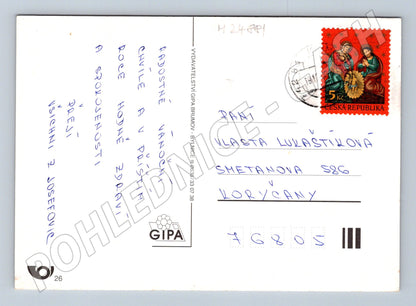 M 24 684
RADOSTNÉ VÁNOČNÍ
CHVÍLE A V PŘÍŠTÍM
ROCE HODNĚ ZDRAVÍ
A SPOKOJENOSTI
PŘEJÍ
VŠICHNI Z JOSEFOVIC
VYDAVATELSTVÍ GIPA BRUMOV - BYLNICE
GIPA
5 Kč
ČESKÁ REPUBLIKA
PANÍ
VLASTA LUKAŠTÍKOVÁ
SMETANOVA 586
KORYČANY
76805
26
POHLEDNICE-